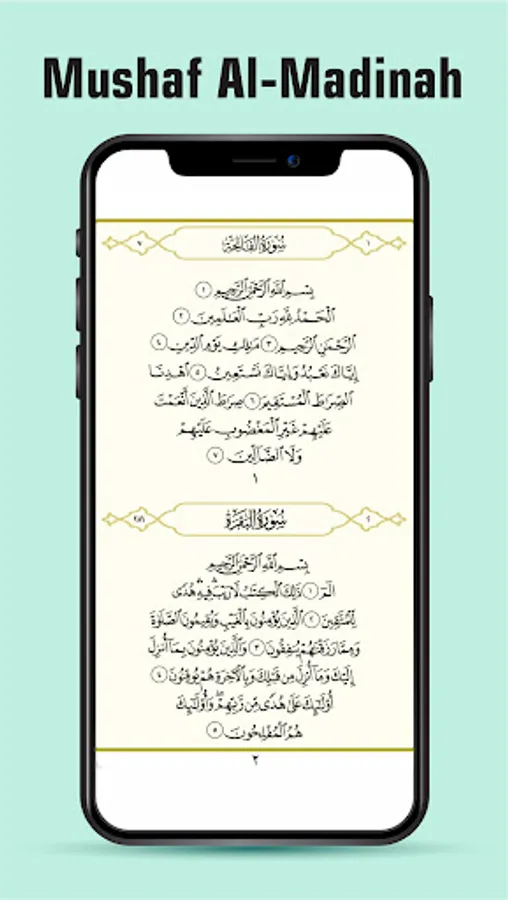 Mushaf Al-Madinah
٧ سُورَةُ الفَاتِحَةِ ١
بِسْمِ ٱللَّهِ ٱلرَّحْمَٰنِ ٱلرَّحِيمِ ١
ٱلْحَمْدُ لِلَّهِ رَبِّ ٱلْعَٰلَمِينَ ٢
ٱلرَّحْمَٰنِ ٱلرَّحِيمِ ٣ مَٰلِكِ يَوْمِ ٱلدِّينِ ٤
إِيَّاكَ نَعْبُدُ وَإِيَّاكَ نَسْتَعِينُ ٥ ٱهْدِنَا
ٱلصِّرَٰطَ ٱلْمُسْتَقِيمَ ٦ صِرَٰطَ ٱلَّذِينَ أَنْعَمْتَ
عَلَيْهِمْ غَيْرِ ٱلْمَغْضُوبِ عَلَيْهِمْ
وَلَا ٱلضَّآلِّينَ ٧
١
٢٨٦ سُورَةُ البَقَرَةِ ٢
بِسْمِ ٱللَّهِ ٱلرَّحْمَٰنِ ٱلرَّحِيمِ
الٓمٓ ١ ذَٰلِكَ ٱلْكِتَٰبُ لَا رَيْبَۛ فِيهِۛ هُدًى
لِّلْمُتَّقِينَ ٢ ٱلَّذِينَ يُؤْمِنُونَ بِٱلْغَيْبِ وَيُقِيمُونَ ٱلصَّلَوٰةَ
وَمِمَّا رَزَقْنَٰهُمْ يُنفِقُونَ ٣ وَٱلَّذِينَ يُؤْمِنُونَ بِمَآ أُنزِلَ
إِلَيْكَ وَمَآ أُنزِلَ مِن قَبْلِكَ وَبِٱلْءَاخِرَةِ هُمْ يُوقِنُونَ ٤
أُو۟لَٰٓئِكَ عَلَىٰ هُدًى مِّن رَّبِّهِمْۖ وَأُو۟لَٰٓئِكَ
هُمُ ٱلْمُفْلِحُونَ ٥
٢